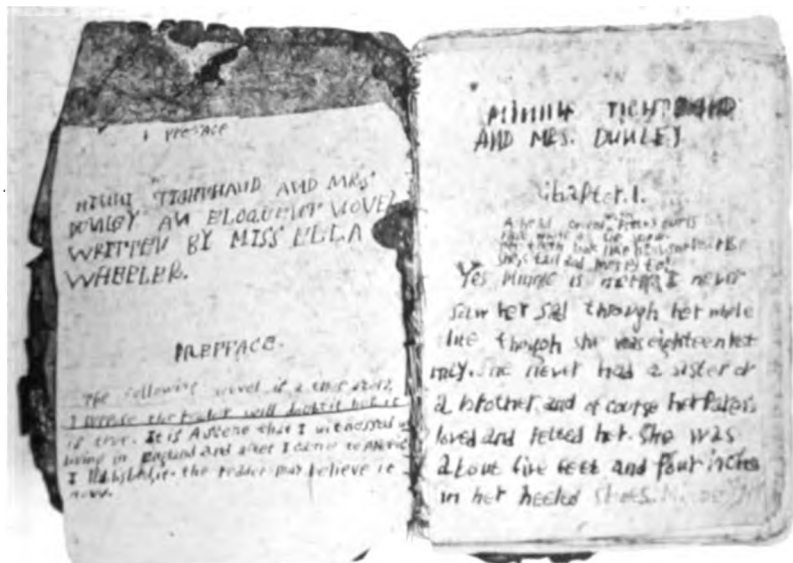 PREFACE
MINNI TIGHTHAND AND MRS
DUNLEY AN ELOQUENT NOVEL
WRITTEN BY MISS ELLA
WHEELER.
PREFFACE.
The following novel is a true story,
I suppose the reader will doubt it but it
is true. It is A scene that I witnessed
living in England and after I came to
I it the reader may believe it
now.
MINNIE TIGHTHAND
AND MRS. DUNLEY
Chapter. 1.
A head covered with curls
her teeth look like
she's tall and
Yes Minnie is I never
saw her sad through her whole
live though she was eighteen
She never had a sister or
a brother, and of course her
loved and petted her. She was
about five feet and four inches
in her heeled shoes.